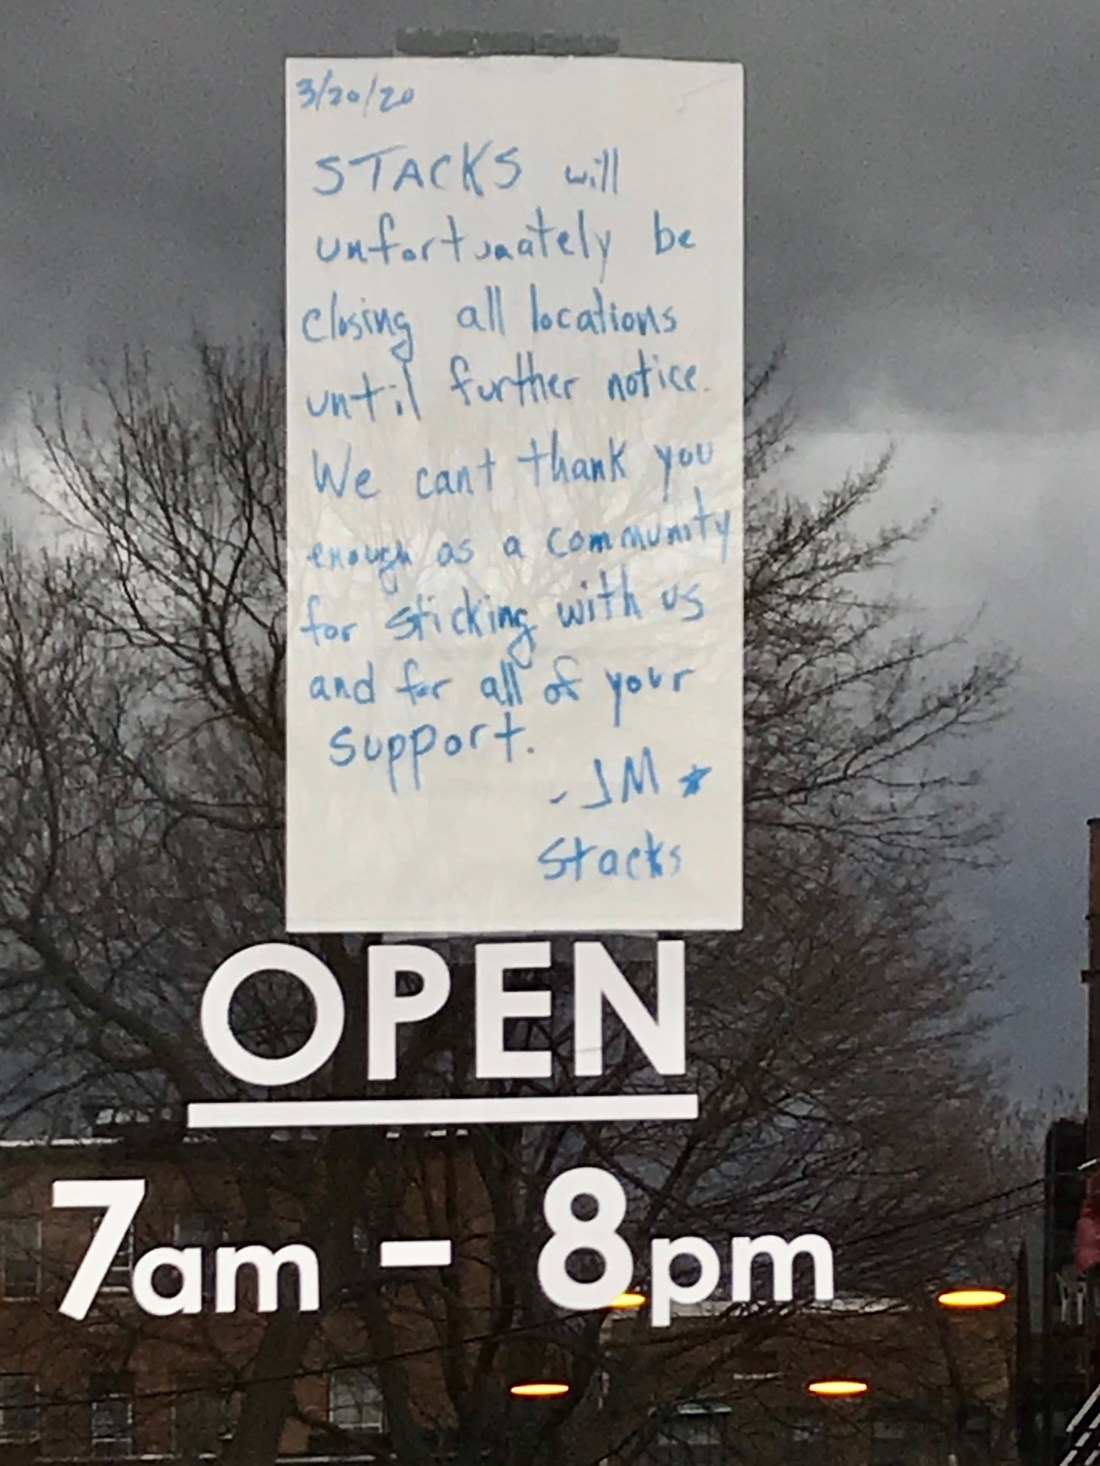 3/20/20
STACKS will
unfortunately be
closing all locations
until further notice.
We cant thank you
enough as a community
for sticking with us
and for all of your
support.
- JM ★
Stacks
OPEN
7am - 8pm